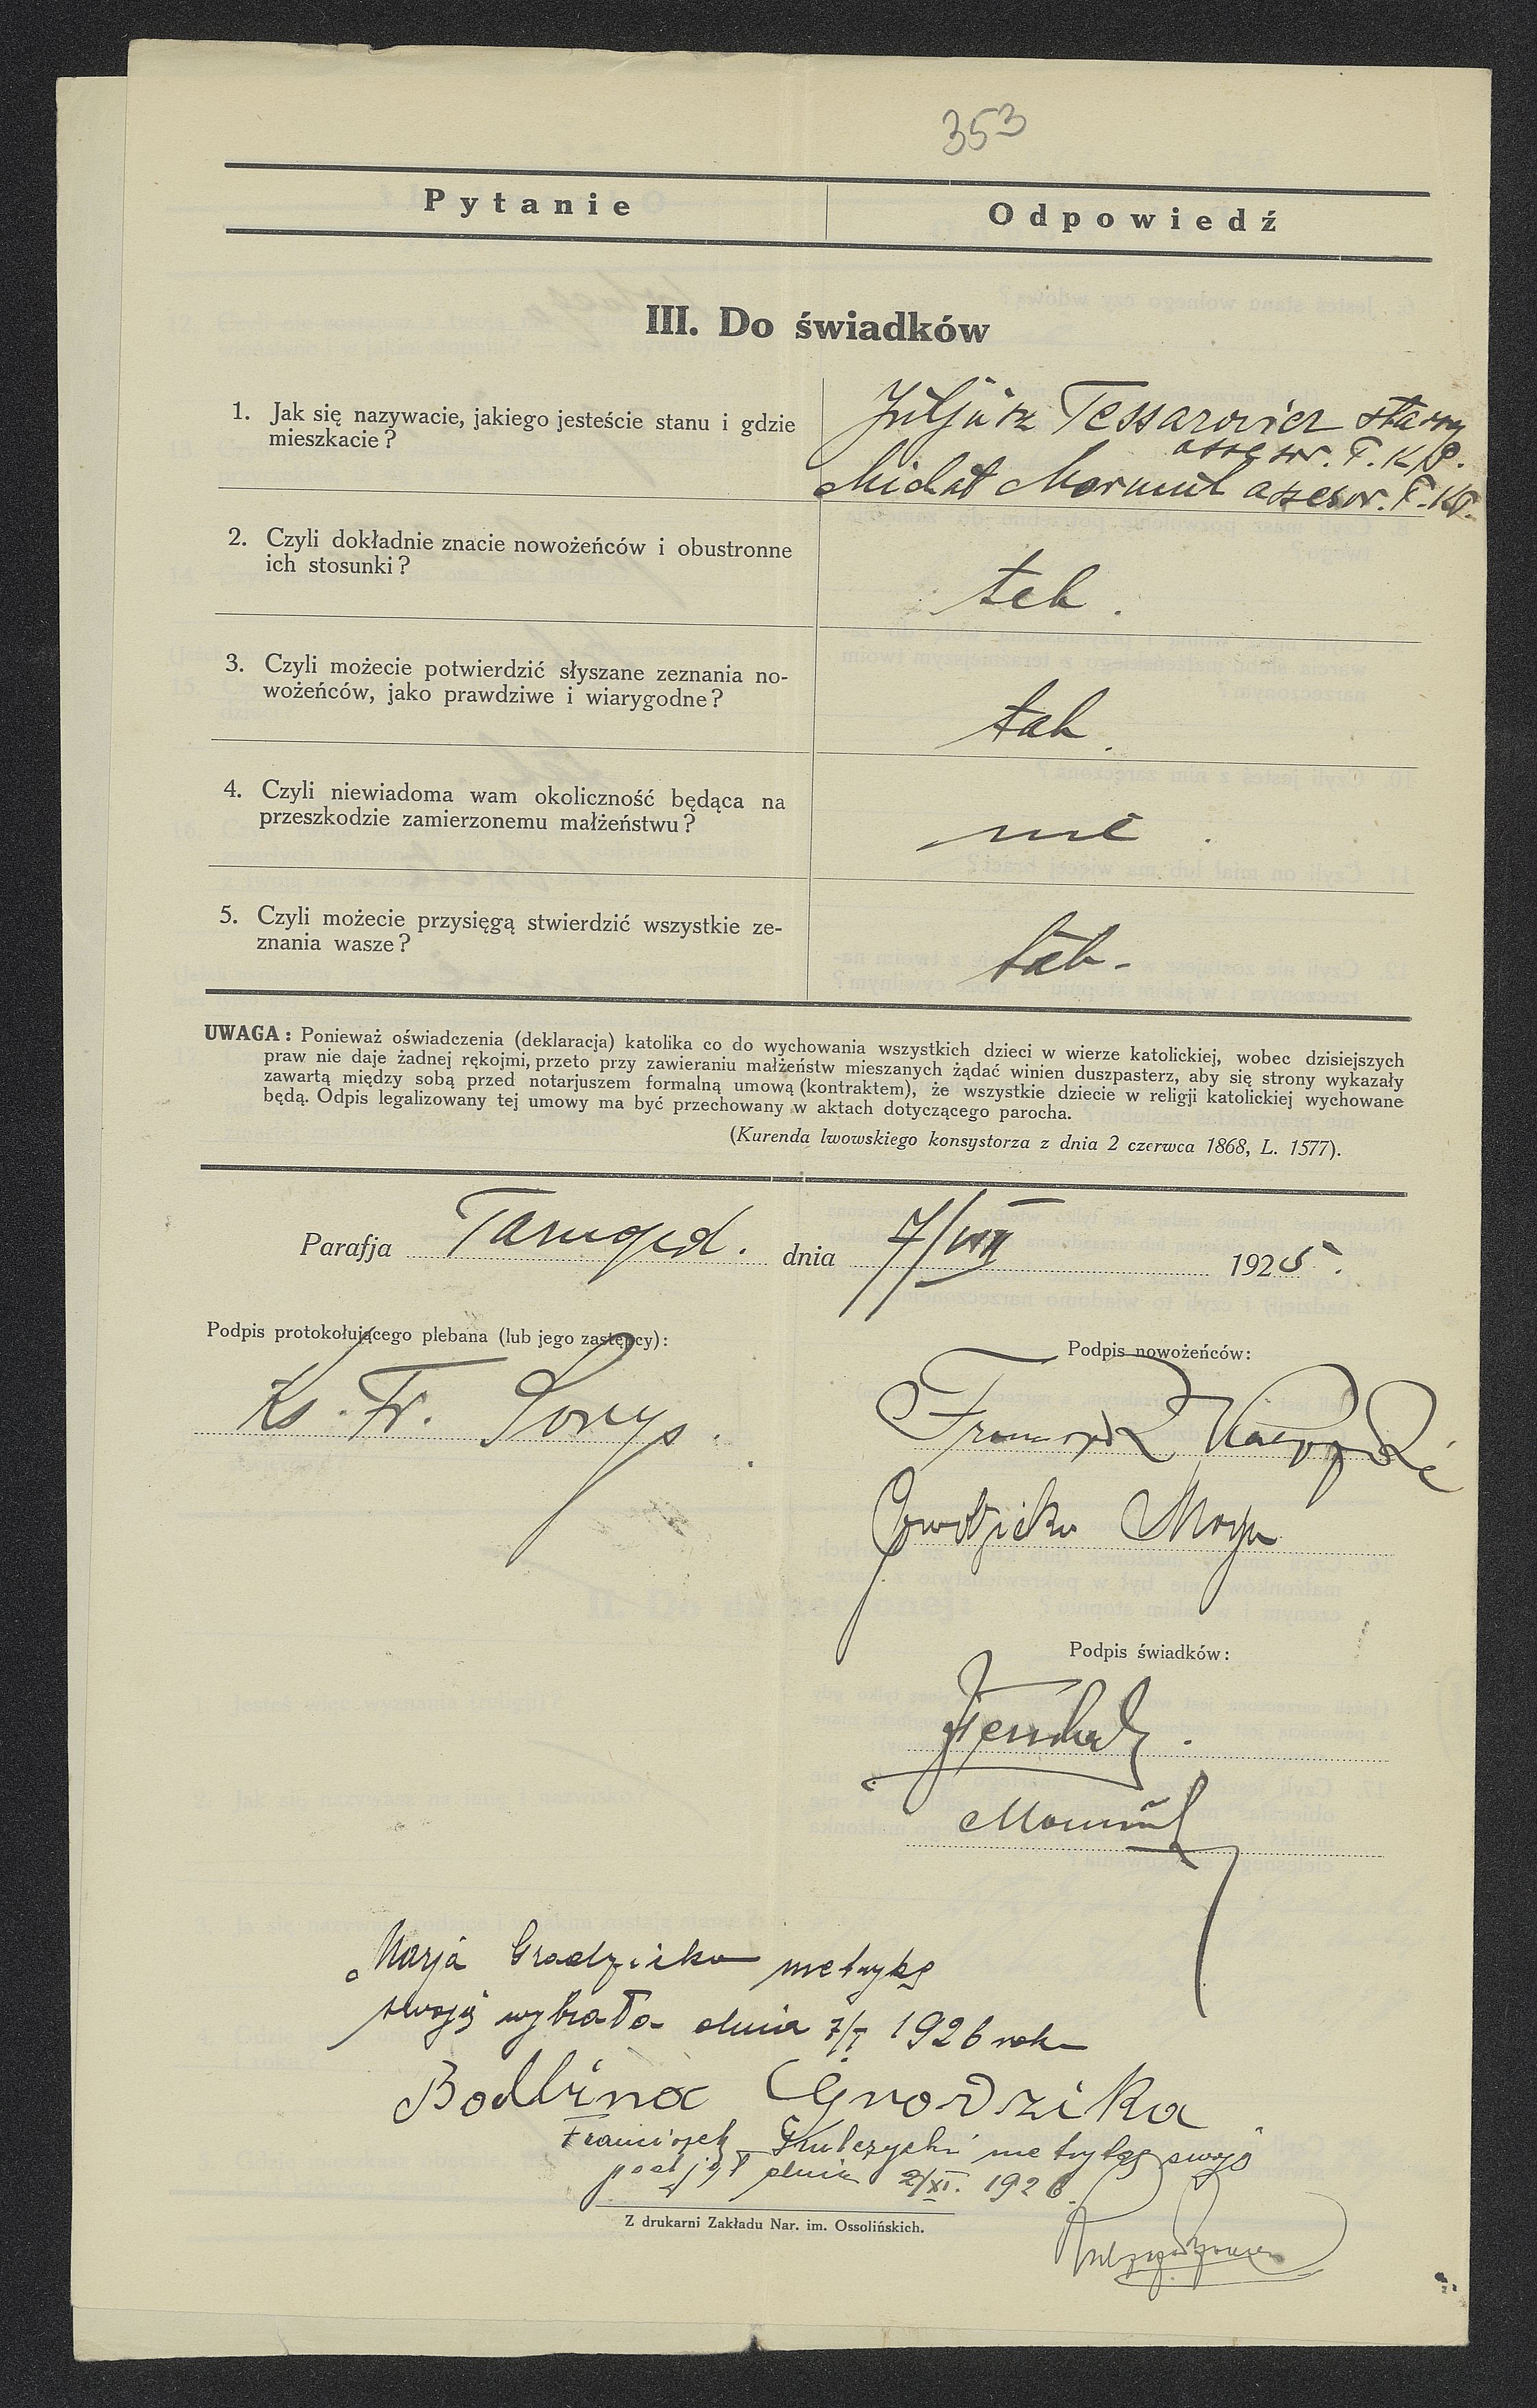 353
Pytanie
Odpowiedź
III. Do świadków
1. Jak się nazywacie, jakiego jesteście stanu i gdzie
mieszkacie?
Juljusz Tessarowicz starszy
asesor. T. K. P.
Michał Mormul asesor. T. K. P.
2. Czyli dokładnie znacie nowożeńców i obustronne
ich stosunki?
tak.
3. Czyli możecie potwierdzić słyszane zeznania no-
wożeńców, jako prawdziwe i wiarygodne?
tak.
4. Czyli niewiadoma wam okoliczność będąca na
przeszkodzie zamierzonemu małżeństwu?
nie.
5. Czyli możecie przysięgą stwierdzić wszystkie ze-
znania wasze?
tak-
UWAGA: Ponieważ oświadczenia (deklaracja) katolika co do wychowania wszystkich dzieci w wierze katolickiej, wobec dzisiejszych
praw nie daje żadnej rękojmi, przeto przy zawieraniu małżeństw mieszanych żądać winien duszpasterz, aby się strony wykazały
zawartą między sobą przed notarjuszem formalną umową (kontraktem), że wszystkie dziecie w religji katolickiej wychowane
będą. Odpis legalizowany tej umowy ma być przechowany w aktach dotyczącego parocha.
(Kurenda lwowskiego konsystorza z dnia 2 czerwca 1868, L. 1577).
Parafja dnia 7/VIII 1925.
Podpis protokołującego plebana (lub jego zastępcy):
Podpis nowożeńców:
Ks. Fr.
Franciszek
Grodzicka Marja
Podpis świadków:
Mormul
Marja Grodzicka metrykę
swoją wybrała dnia 7/I 1926 rok
Grodzicka
Franciszek metrykę swoją
podjął dnia 2/XI. 1926.
Z drukarni Zakładu Nar. im. Ossolińskich.